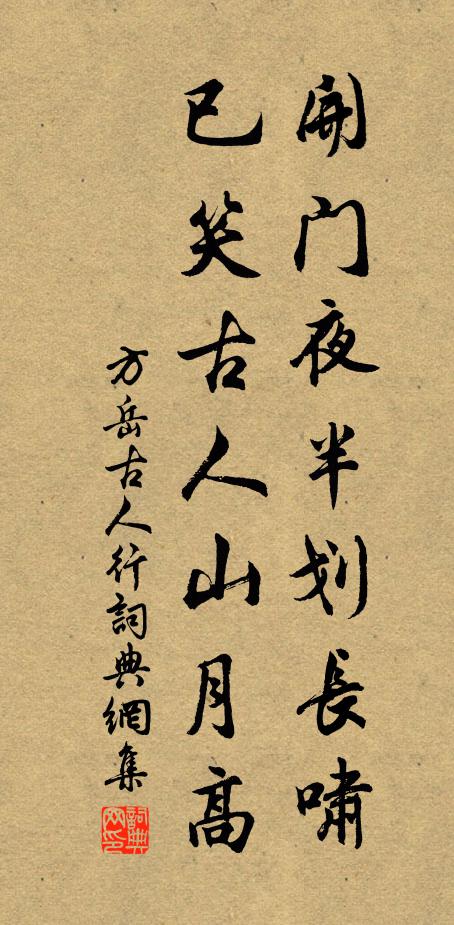 開門夜半划長嘯
已笑古人山月高
方岳古人行詞典網集
詞典
网印